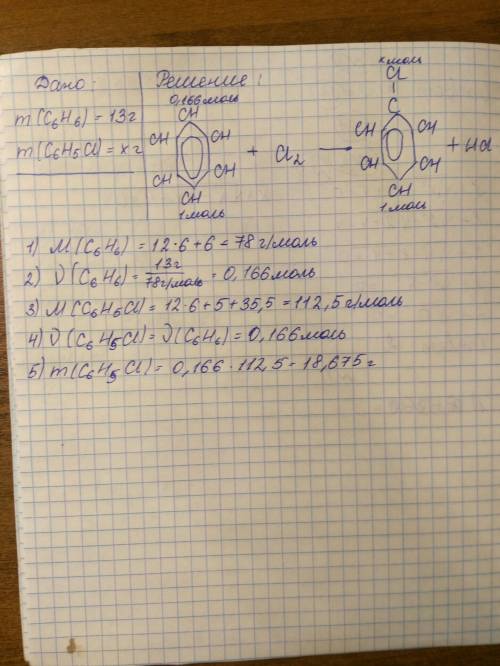 Дано:
m(C6H6) = 13г
m(C6H5Cl) = x г
Решение:
0,166 моль
CH
CH CH
CH CH
CH
1 моль
+ Cl2 →
x моль
Cl
C
CH CH
CH CH
CH
1 моль
+ HCl
1) M(C6H6) = 12·6+6 = 78 г/моль
2) ν(C6H6) = 13г / 78г/моль = 0,166 моль
3) M(C6H5Cl) = 12·6+5+35,5 = 112,5 г/моль
4) ν(C6H5Cl) = ν(C6H6) = 0,166 моль
5) m(C6H5Cl) = 0,166·112,5 = 18,675 г